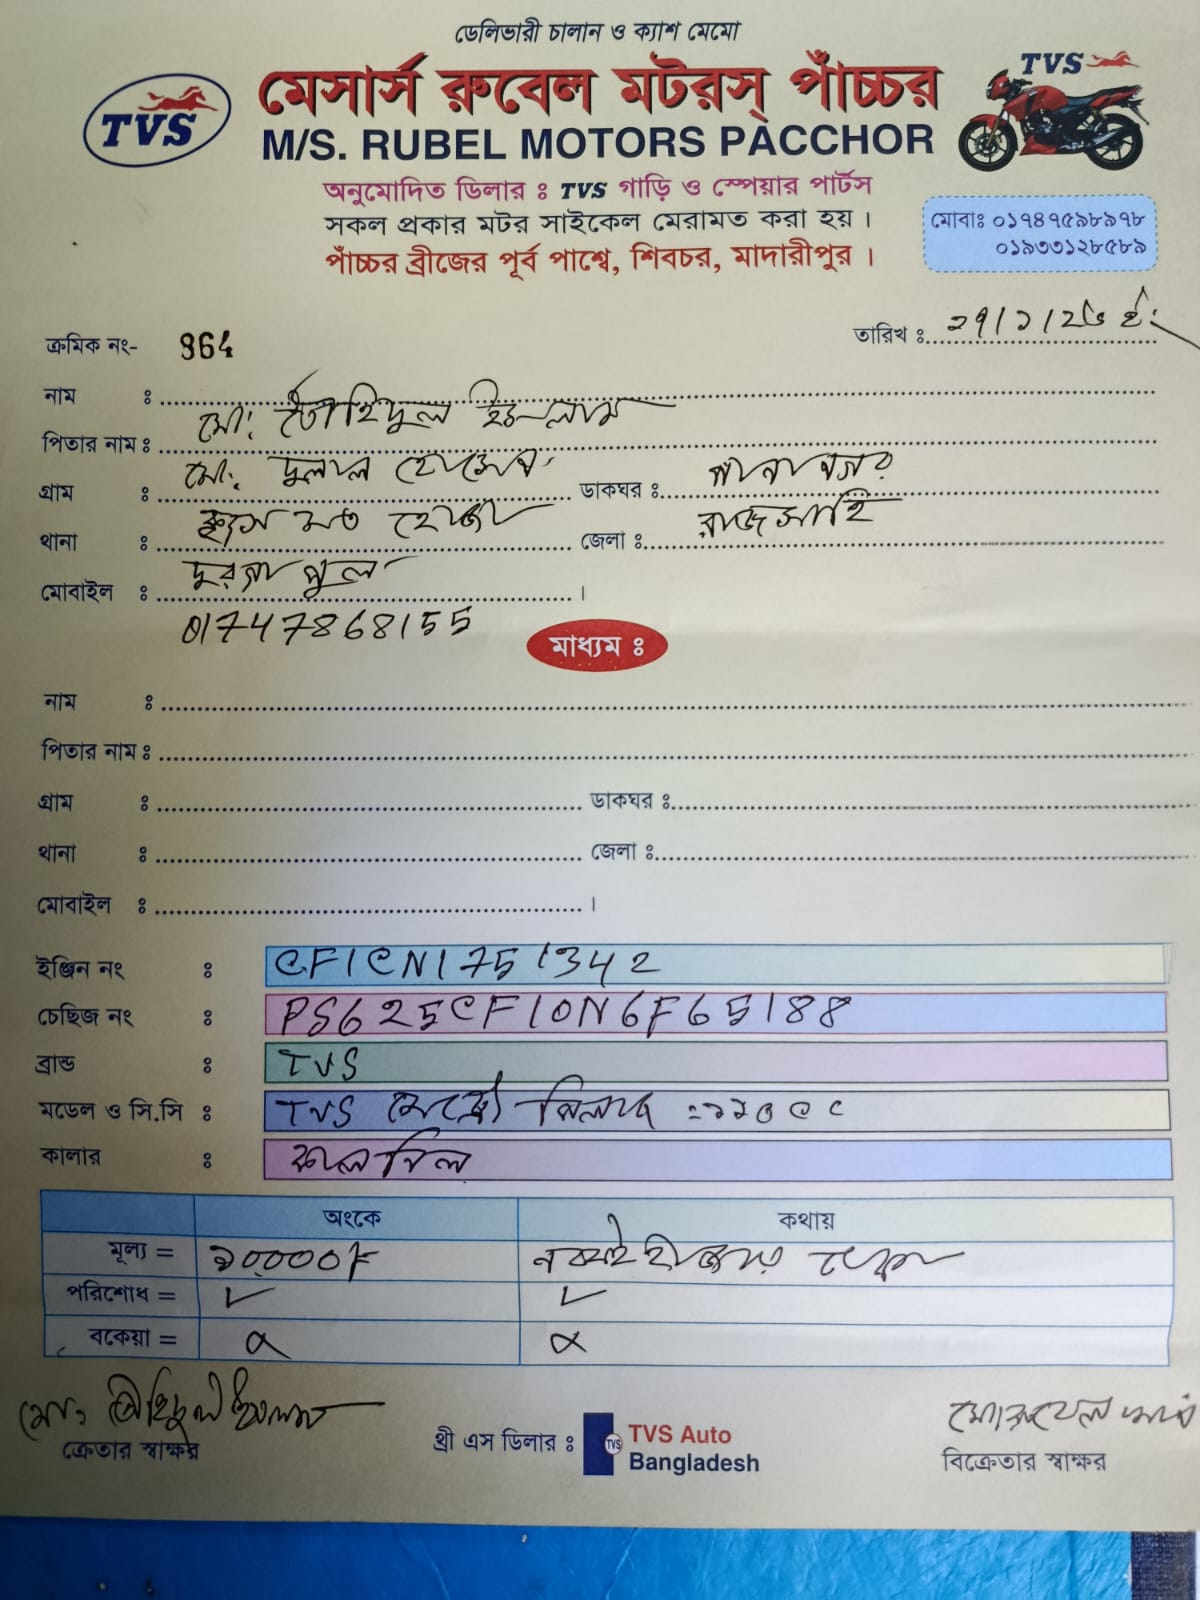 ডেলিভারী চালান ও ক্যাশ মেমো
TVS
মেসার্স রুবেল মটরস্ পাঁচ্চর
TVS
M/S. RUBEL MOTORS PACCHOR
অনুমোদিত ডিলার ঃ TVS গাড়ি ও স্পেয়ার পার্টস
সকল প্রকার মটর সাইকেল মেরামত করা হয়।
পাঁচ্চর ব্রীজের পূর্ব পার্শ্বে, শিবচর, মাদারীপুর।
মোবাঃ ০১৭৪৭৫৯৮৯৭৮
০১৯৩৩১২৮৫৮৯
ক্রমিক নং- 964
তারিখ ঃ
নাম ঃ মো: তৌহিদুল ইসলাম
পিতার নাম ঃ মো: দুলাল হোসেন
গ্রাম ঃ ডাকঘর ঃ
থানা ঃ জেলা ঃ রাজসাহি
মোবাইল ঃ 01747868155
মাধ্যম ঃ
নাম ঃ
পিতার নাম ঃ
গ্রাম ঃ ডাকঘর ঃ
থানা ঃ জেলা ঃ
মোবাইল ঃ
ইঞ্জিন নং ঃ CF1CN1751342
চেছিজ নং ঃ PS625CF10N6F65188
ব্রান্ড ঃ TVS
মডেল ও সি.সি ঃ TVS মেট্রো
কালার ঃ
অংকে কথায়
মূল্য = ৯০,০০০/= নব্বাই হাজার টাকা
পরিশোধ =
বকেয়া =
ক্রেতার স্বাক্ষর
থ্রী এস ডিলার ঃ TVS TVS Auto Bangladesh
বিক্রেতার স্বাক্ষর